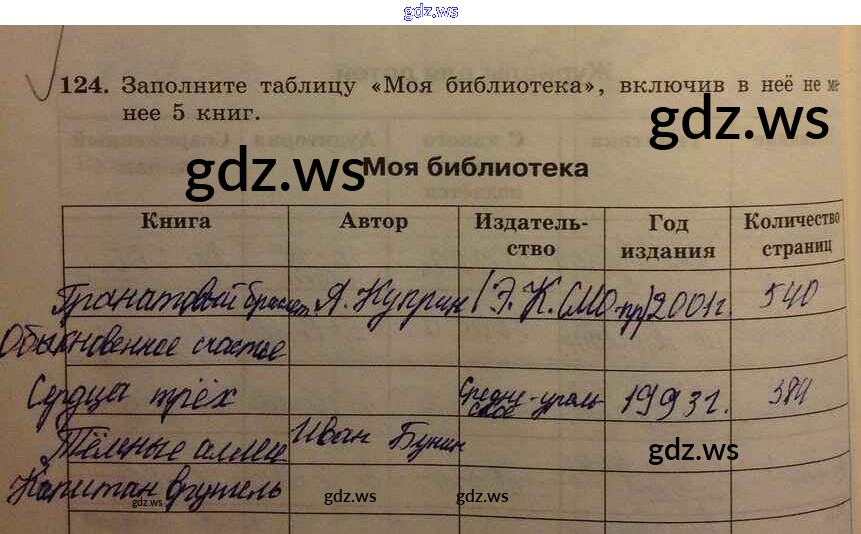 gdz.ws
124. Заполните таблицу «Моя библиотека», включив в неё не ме-
нее 5 книг.
gdz.ws
gdz.ws
Моя библиотека
Книга Автор Издатель- Год Количество
ство издания страниц
Гранатовый браслет А. Куприн 2001г. 540
Обыкновенное счастье
Сердца трёх Средне-ураль 1993г. 384
ское
Тёмные аллеи Иван Бунин
gdz.ws
Капитан врунгель
gdz.ws gdz.ws gdz.ws